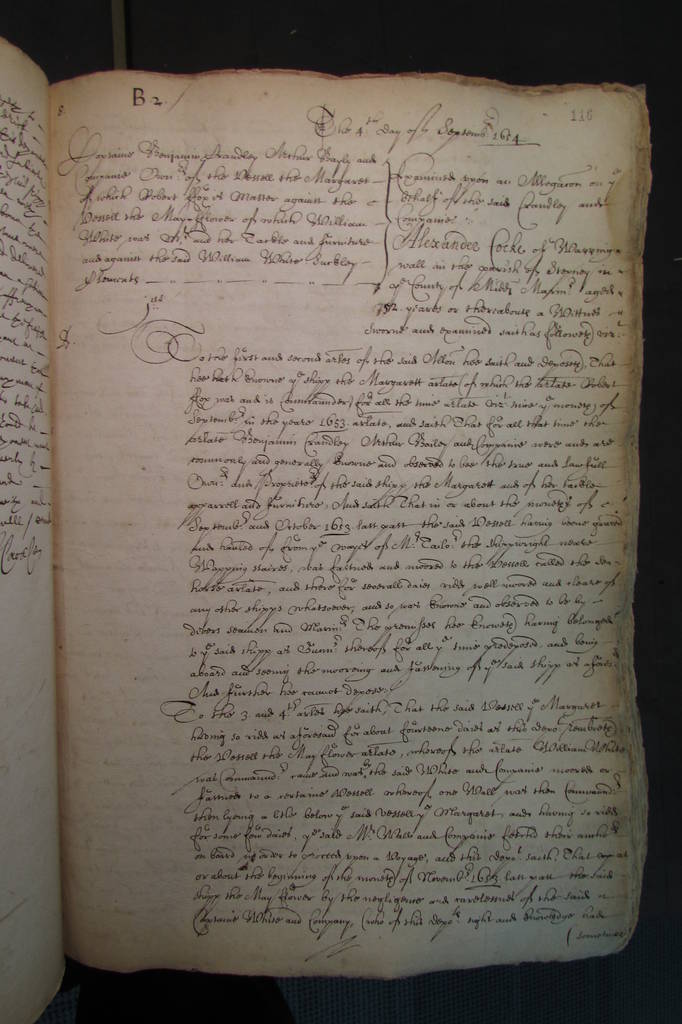 B 2.
116
The 4th day of Septembr 1654
8.
Captaine Benjamin Crandley Arthur Bayly and
Companie Ownrs of the Vessell the Margaret
of which Robert Fox is Master against the
Vessell the May-flower of which William
White was Mr and her Tackle and furniture
and against the said William White Suckley
Clements
Examined upon an Allegacon on ye
behalf of the said Crandley and
Companie
Alexander Cocke of Wapping
wall in the parish of Stepney in
ye County of Middx Marinr aged
yeares or thereabouts a Wittnes
sworne and examined saith as followeth vizt
1us
To the first and second arles of the said Allon hee saith and deposeth, That
hee hath knowne ye shipp the Margarett arlate (of which the arlate Robert
Fox was and is Commander) for all the time arlate vizt since ye moneth of
Septembr in the yeare 1653 arlate, and saith That for all that time the
arlate Benjamin Crandley Arthur Bailey and Companie were and are
commonly and generally knowne and observed to bee the true and lawfull
Ownrs and Proprietors of the said shipp the Margarett and of her tackle
apparrell and furniture, And saith That in or about the moneths of
Septembr and October 1653 last past the said Vessell having beene graved
and hauled of from ye wayes of Mr Tailor the Shipwright neere
Wapping staires, was fastned and moored to the Vessell called the Sea-
horse arlate, and there for severall daies ridd well moored and cleare of
any other shipps whatsoever, and so was knowne and observed to be by
divers seamen and Marinrs The premisses hee knoweth having belonged
to ye said shipp as Gunnr thereof for all ye time predeposed, and being
aboard and seeing the mooreing and fastening of ye said shipp as aforesd
And further hee cannot depose.
To the 3 and 4th arles hee saith, That the said Vessell ye Margaret
having so ridd as aforesaid for about fourteene daies as this depot remembreth
the Vessell the May flower arlate, whereof the arlate William White
was Commandr came and was by the said White and Companie moored or
fastned to a certaine Vessell whereof one Wall was then Commandr
then lyeing a little below ye said vessell ye Margaret, and having so ridd
for some few daies, ye said Mr Wall and Companie fetched their anchor
on board in order to proceed upon a Voyage, and this depot saith, That upon
or about the beginning of the moneth of Novembr 1653 last past the said
shipp the May flower by the negligence and carelessnes of the said
Captaine White and Company (who of this depots sight and knowledge had
(sometimes